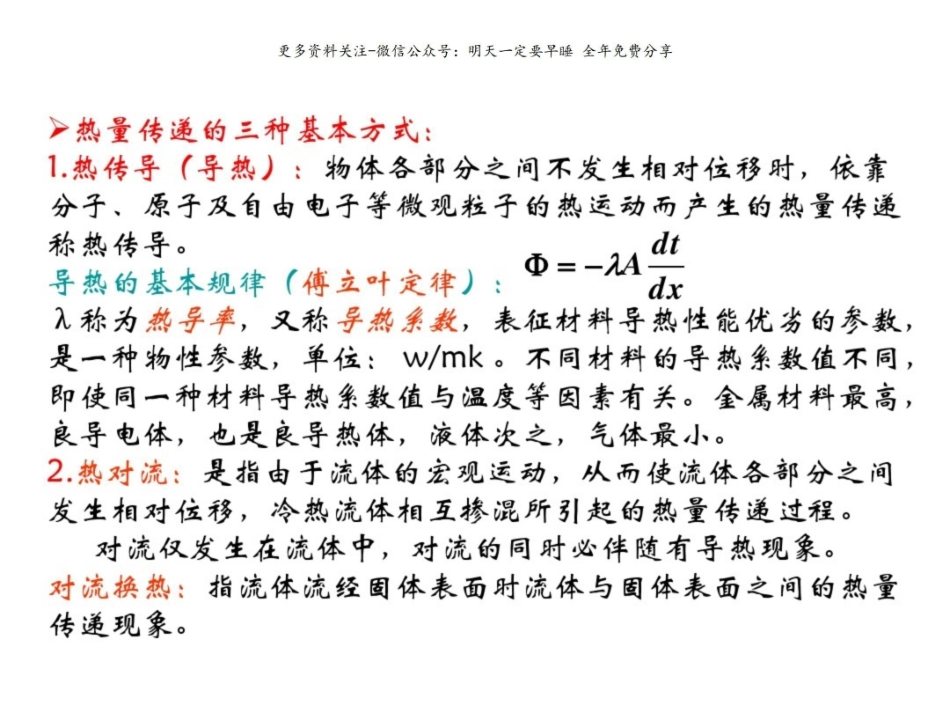 更多资料关注-微信公众号：明天一定要早睡 全年免费分享
➢热量传递的三种基本方式：
1.热传导（导热）：物体各部分之间不发生相对位移时，依靠
分子、原子及自由电子等微观粒子的热运动而产生的热量传递
称热传导。
导热的基本规律（傅立叶定律）： Φ = −λA dt/dx
λ称为热导率，又称导热系数，表征材料导热性能优劣的参数，
是一种物性参数，单位： w/mk 。不同材料的导热系数值不同，
即使同一种材料导热系数值与温度等因素有关。金属材料最高，
良导电体，也是良导热体，液体次之，气体最小。
2.热对流：是指由于流体的宏观运动，从而使流体各部分之间
发生相对位移，冷热流体相互掺混所引起的热量传递过程。
对流仅发生在流体中，对流的同时必伴随有导热现象。
对流换热：指流体流经固体表面时流体与固体表面之间的热量
传递现象。